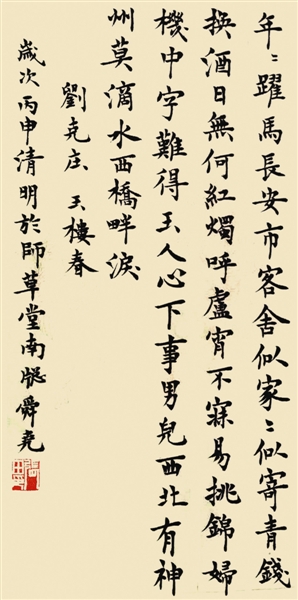 年〻躍馬長安市客舍似家〻似寄青錢
換酒日無何紅燭呼盧宵不寐易挑錦婦
機中字難得玉人心下事男兒西北有神
州莫滴水西橋畔淚
劉克庄 玉樓春
歲次丙申清明於師草堂南牕舜堯